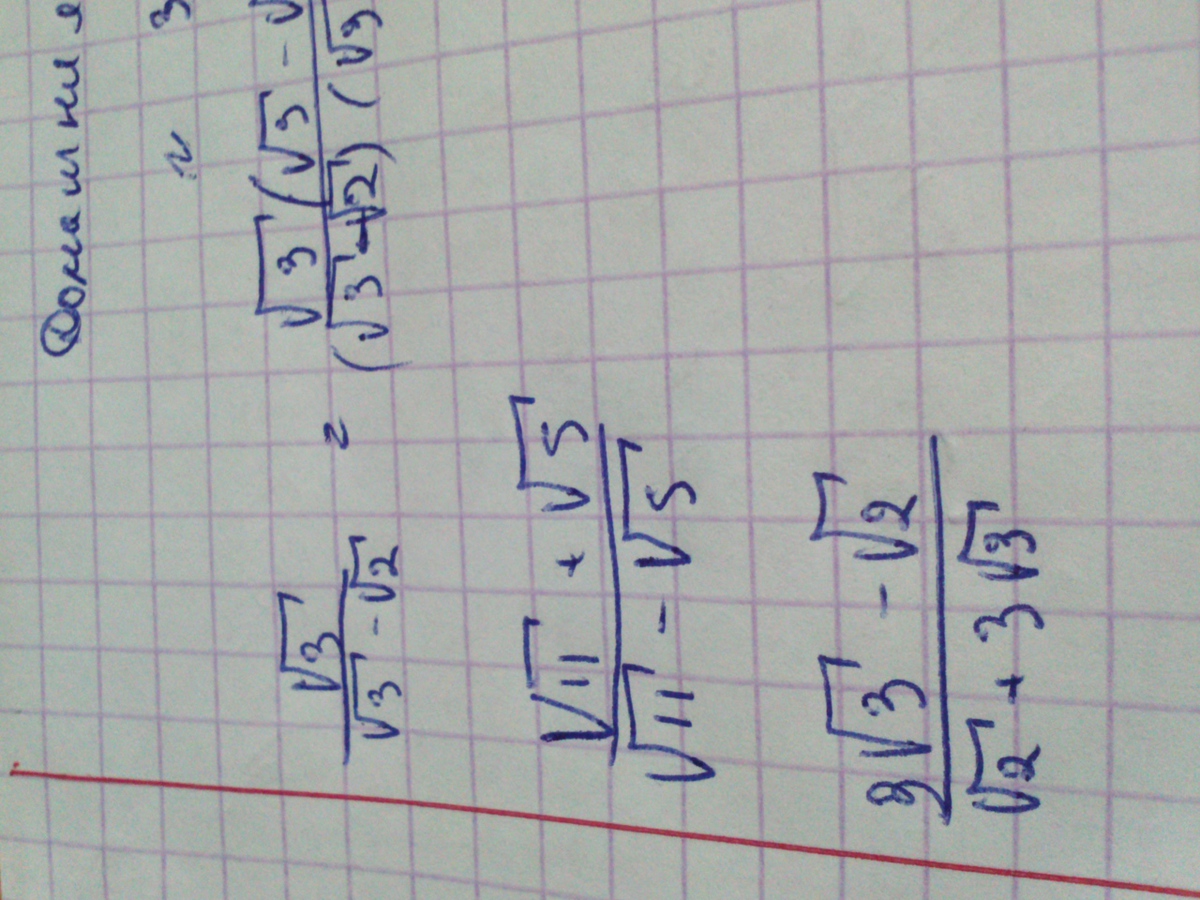 Домашня
= 3
√3 / (√3 - √2) = √3 (√3 - √ / (√3 - √2) (√3
(√11 + √5) / (√11 - √5)
(3√3 - √2) / (√2 + 3√3)